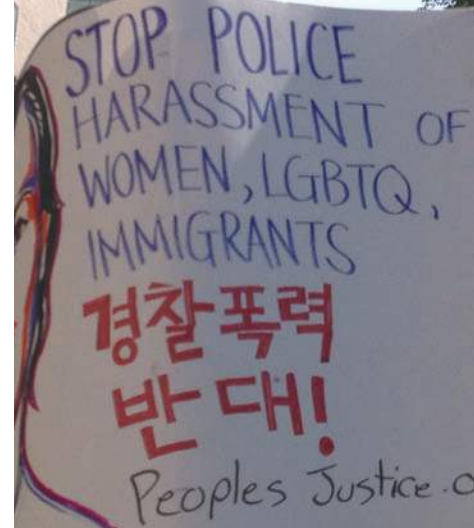 STOP POLICE
HARASSMENT OF
WOMEN, LGBTQ,
IMMIGRANTS
경찰폭력
반대!
Peoples Justice.o